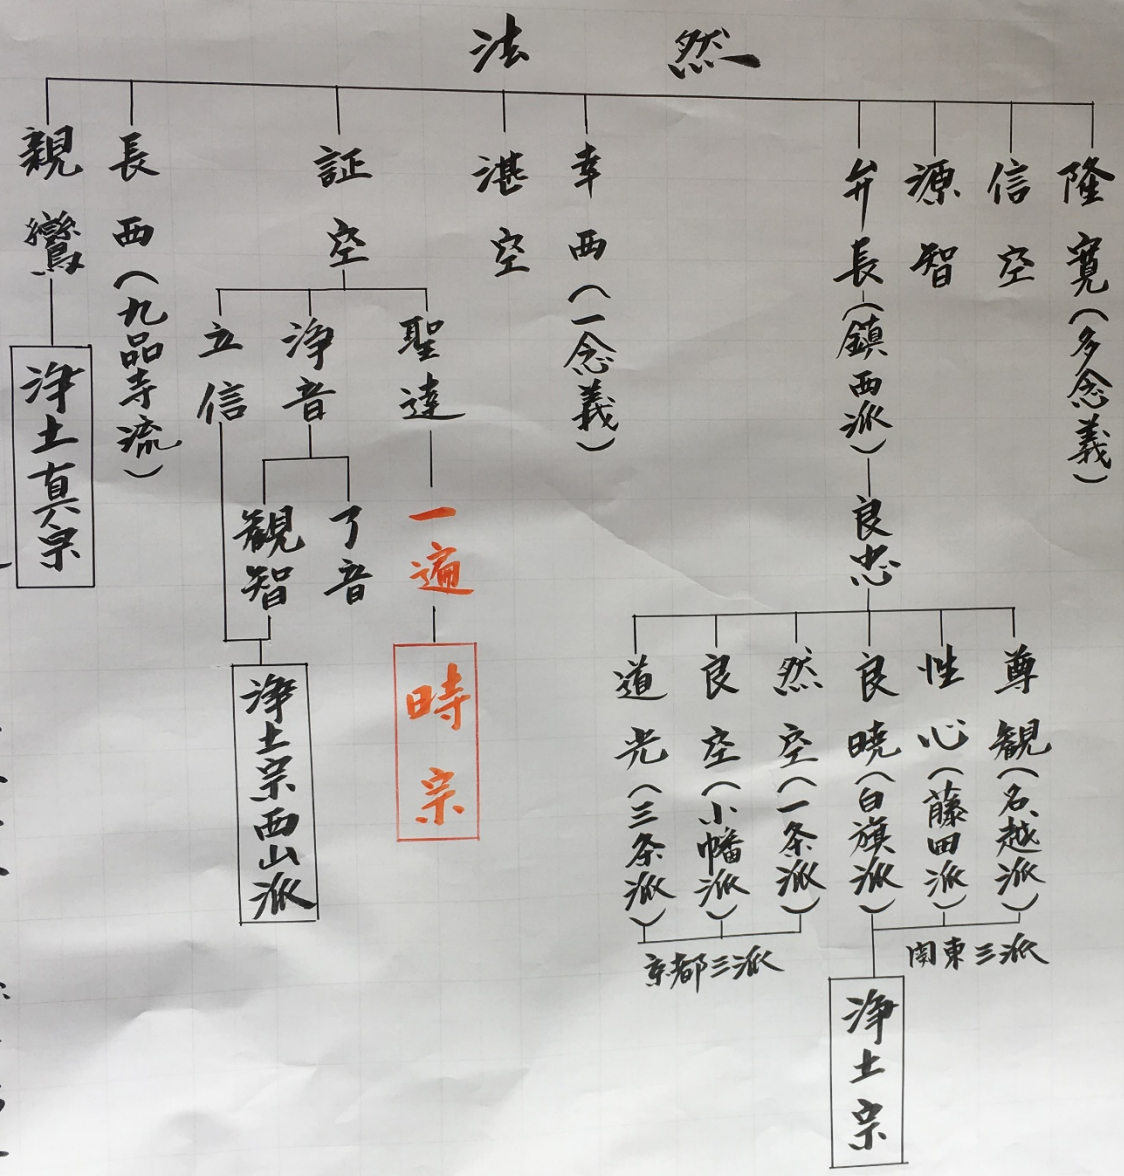 法然
隆寛（多念義）
信空
源智
弁長（鎮西派）
良忠
尊観（名越派）
性心（藤田派）
良暁（白旗派）
然空（一条派）
良空（小幡派）
道光（三条派）
関東三派
京都三派
浄土宗
幸西（一念義）
湛空
証空
聖達
一遍
時宗
浄音
了音
観智
立信
浄土宗西山派
長西（九品寺流）
親鸞
浄土真宗